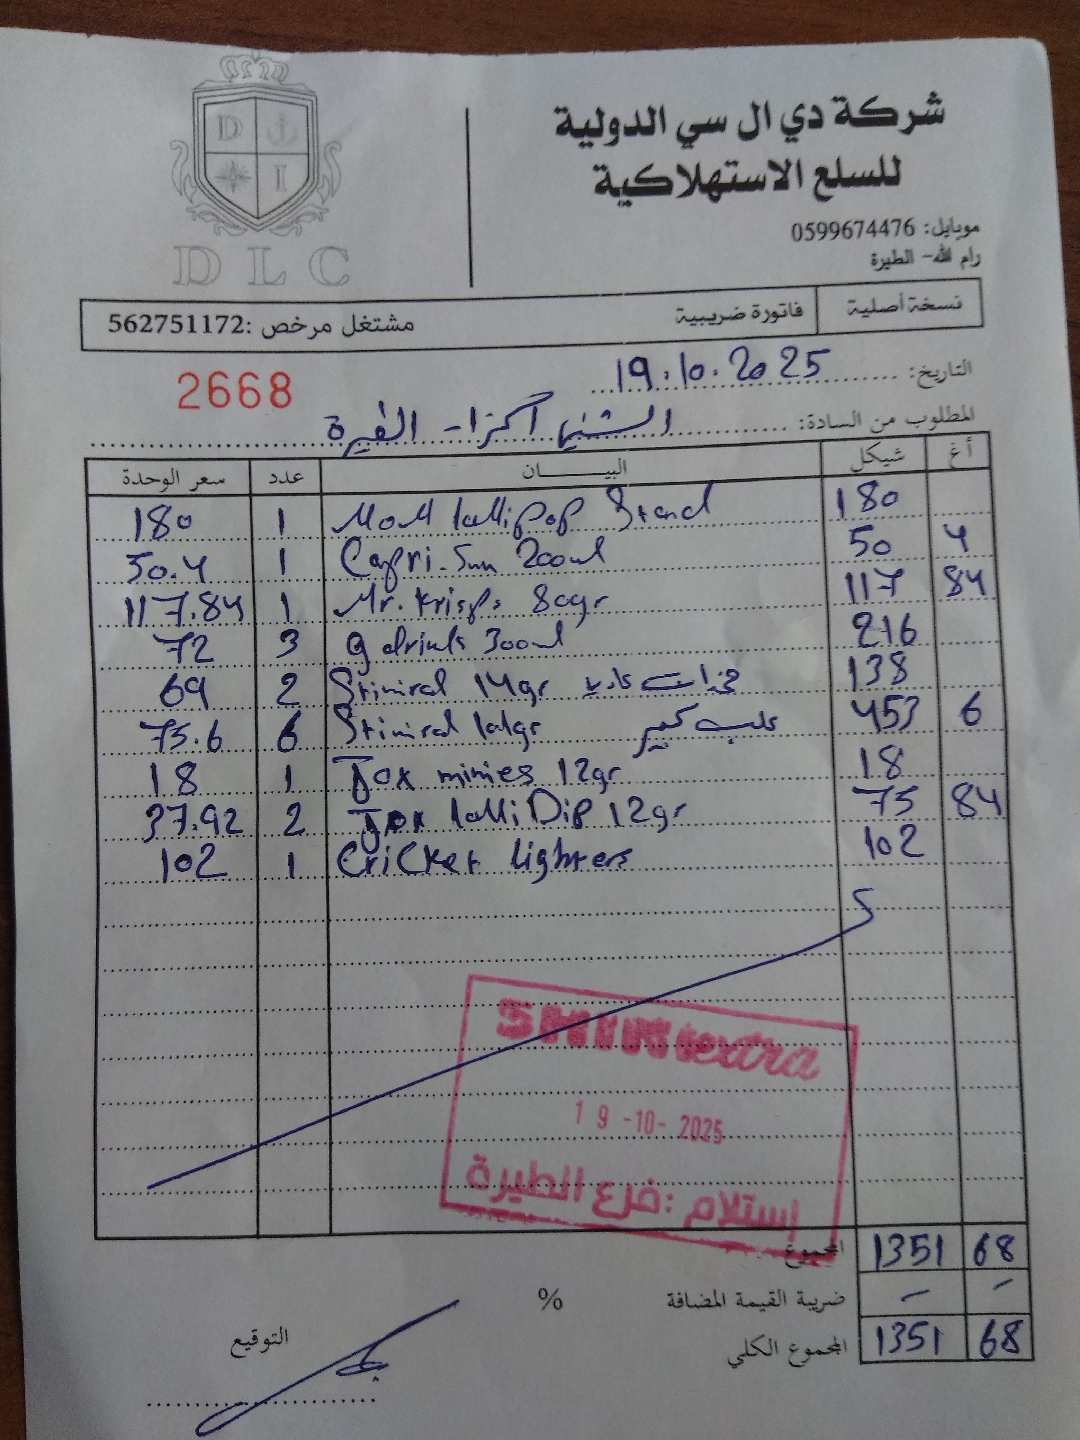 D I
D L C
شركة دي ال سي الدولية
للسلع الاستهلاكية
موبايل: 0599674476
رام الله- الطيرة
نسخة أصلية فاتورة ضريبية مشتغل مرخص :562751172
التاريخ: 19.10.2025
2668
المطلوب من السادة: الشني اكزا - الطيرة
أغ شيكل البيــــــان عدد سعر الوحدة
180 1 MoM lollipop Stand 180
50.4 1 Capri-Sun 200ml 50 4
117.84 1 Mr. Krisps 80gr 117 84
72 3 g drinks 300ml 216
69 2 Stimirol 14gr 138
75.6 6 Stimirol علب كبير 453 6
18 1 Jox minies 12gr 18
37.92 2 Jox lolli Dip 12gr 75 84
102 1 Cricket lighters 102
SHINI extra
19-10-2025
إستلام : فرع الطيرة
المجموع 1351 68
ضريبة القيمة المضافة % - -
المجموع الكلي 1351 68
التوقيع